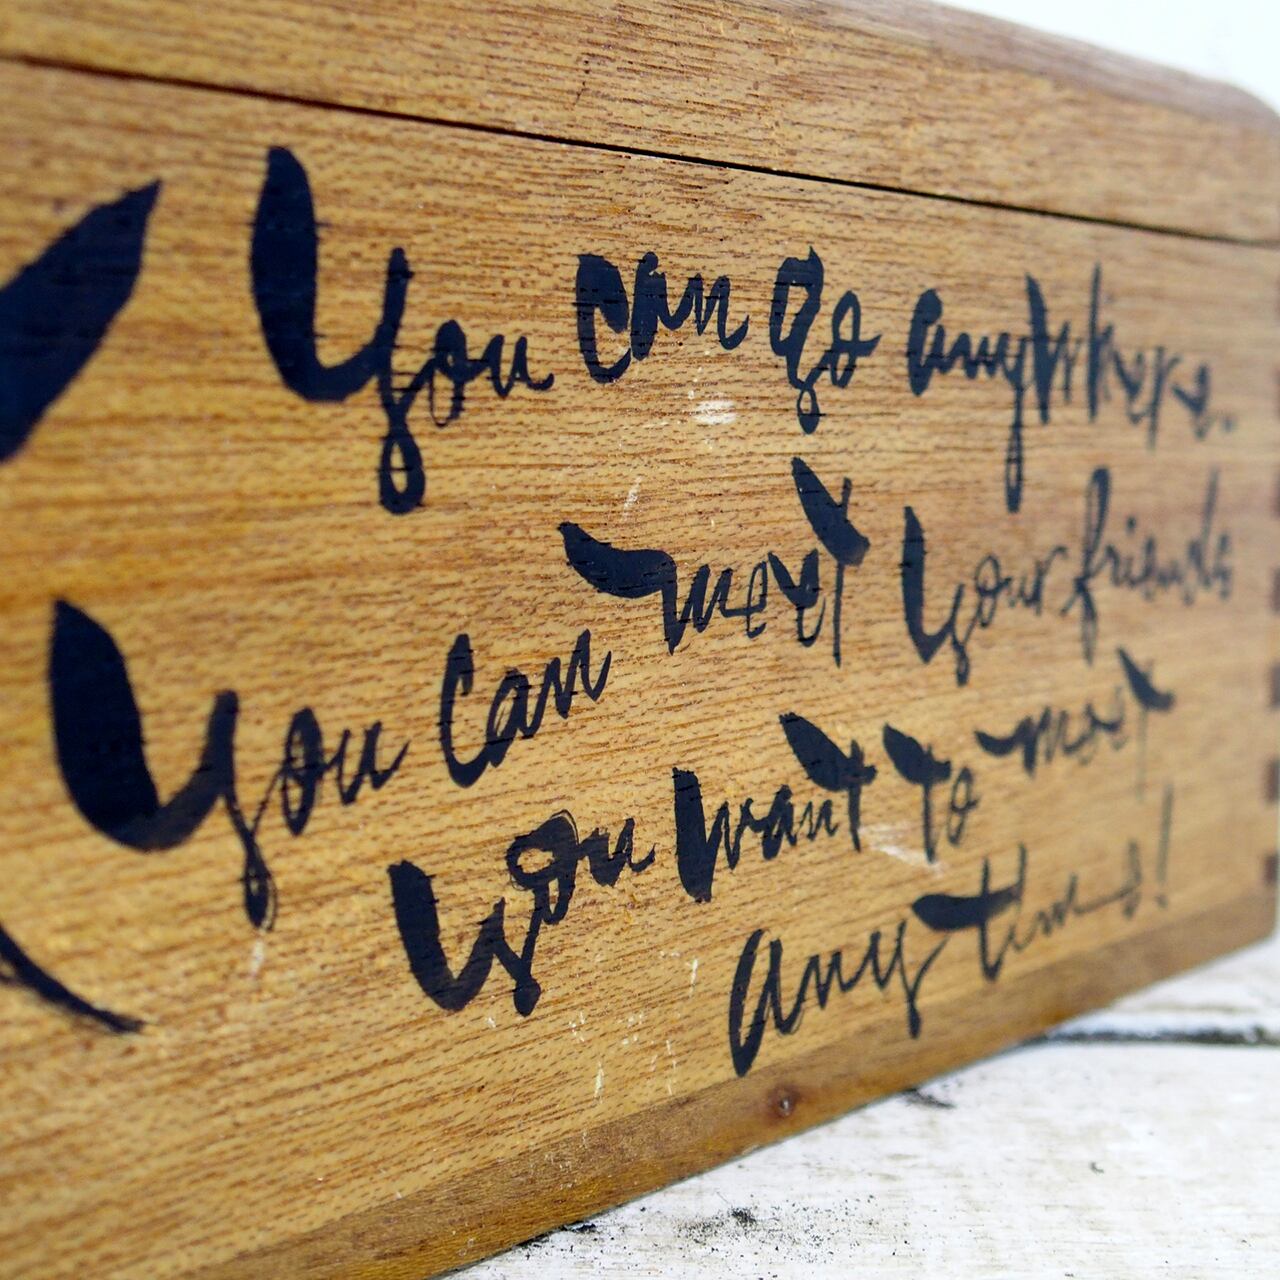 You can go anywhere.
You can meet your friends
you want to meet
anytime!